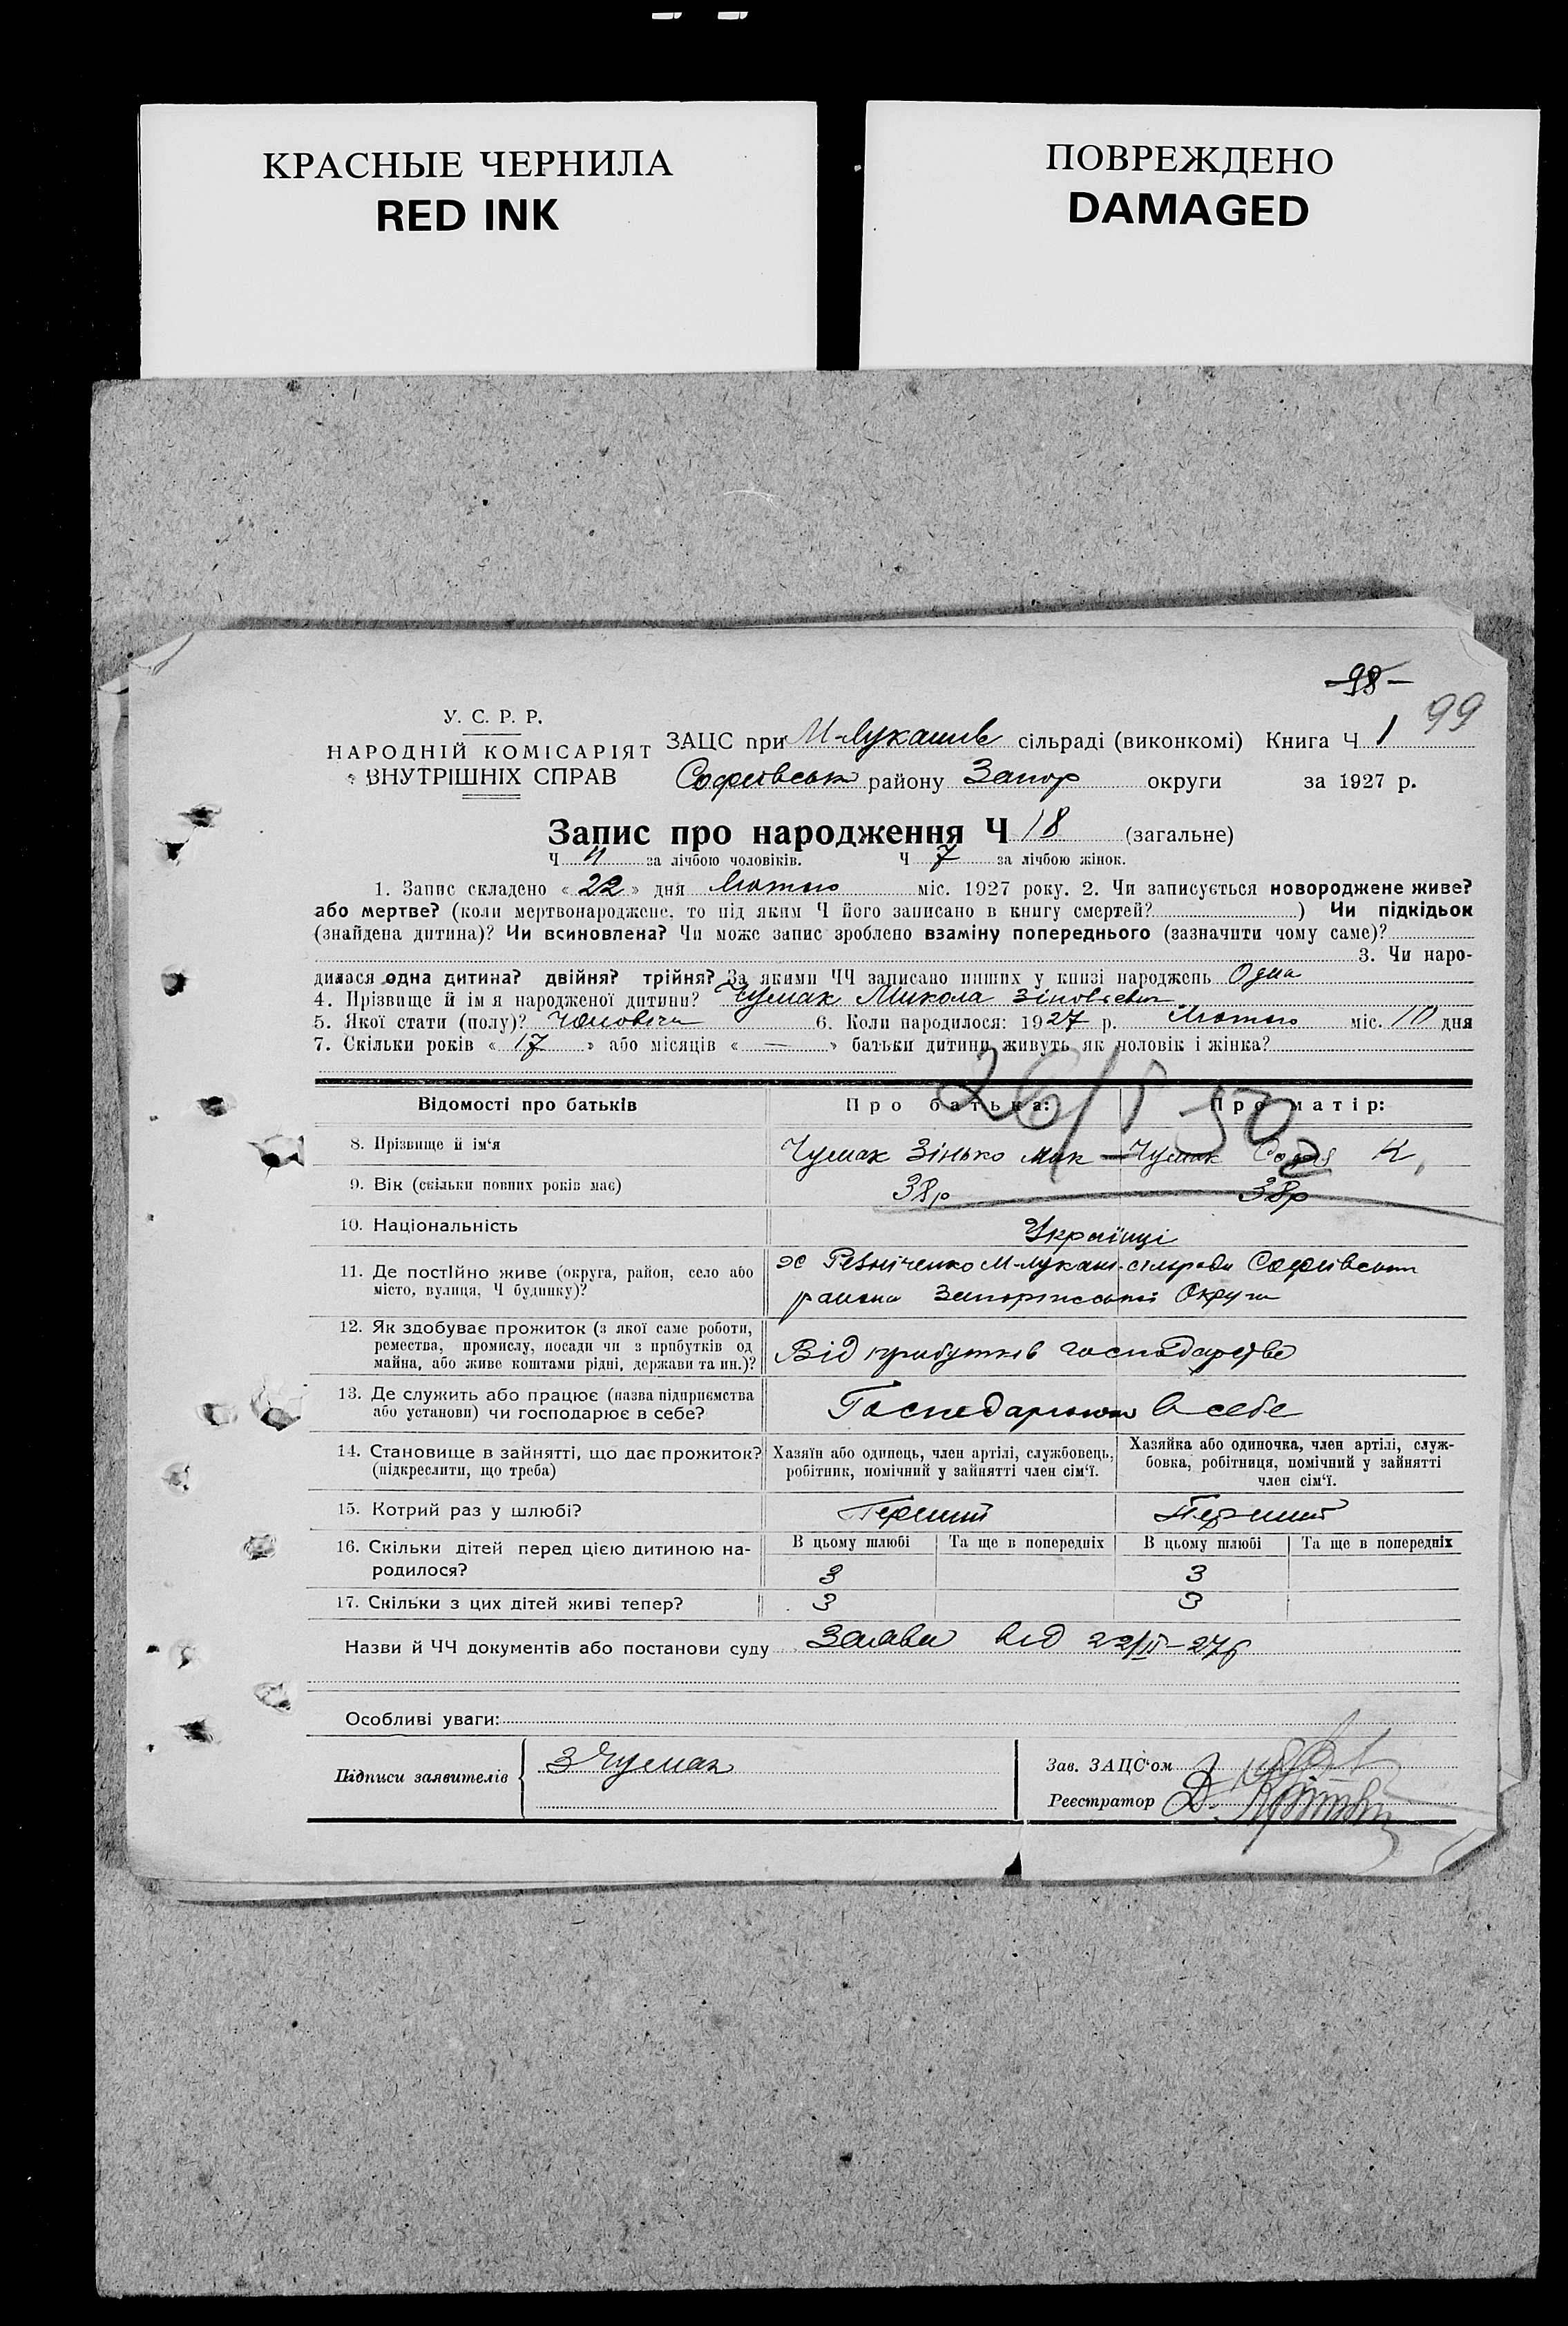 КРАСНЫЕ ЧЕРНИЛА
RED INK
ПОВРЕЖДЕНО
DAMAGED
98
99
У. С. Р. Р.
НАРОДНІЙ КОМІСАРІЯТ
ВНУТРІШНІХ СПРАВ
ЗАЦС при М-Лукашів сільраді (виконкомі) Книга Ч 1
Софіївськ району Запор округи за 1927 р.
Запис про народження Ч 18 (загальне)
Ч 11 за лічбою чоловіків. Ч 7 за лічбою жінок.
1. Запис складено « 22 » дня Лютого міс. 1927 року. 2. Чи записується новороджене живе?
або мертве? (коли мертвонароджене, то під яким Ч його записано в книгу смертей? ) Чи підкідьок
(знайдена дитина)? Чи всиновлена? Чи може запис зроблено взаміну попереднього (зазначити чому саме)?
3. Чи наро-
дилася одна дитина? двійня? трійня? За якими ЧЧ записано инших у книзі народжень Одна
4. Прізвище й ім я народженої дитини? Чумак Микола Зіновієвич
5. Якої стати (полу)? Чоловіча 6. Коли народилося: 1927 р. Лютого міс. 10 дня
7. Скільки років « 17 » або місяців « — » батьки дитини живуть як чоловік і жінка?
26/I 50
Відомості про батьків Про батька: Про матір:
8. Прізвище й ім‘я Чумак Зінько Мак Чумак Софія К.
9. Вік (скільки повних років має) 38р 38р
10. Національність Українці
11. Де постійно живе (округа, район, село або
місто, вулиця, Ч будинку)?
х Резніченко М-лукаш. сільради Софіївськ
района Запоріжської Округи
12. Як здобуває прожиток (з якої саме роботи,
ремества, промислу, посади чи з прибутків од
майна, або живе коштами рідні, держави та ин.)?
Від прибутків господарства
13. Де служить або працює (назва підприємства
або установи) чи господарює в себе?
Господарюют в себе
14. Становище в зайнятті, що дає прожиток?
(підкреслити, що треба)
Хазяїн або одинець, член артілі, службовець,
робітник, помічний у зайнятті член сім‘ї.
Хазяйка або одиночка, член артілі, служ-
бовка, робітниця, помічний у зайнятті
член сім‘ї.
15. Котрий раз у шлюбі? Перший Перший
16. Скільки дітей перед цією дитиною на-
родилося?
В цьому шлюбі Та ще в попередніх В цьому шлюбі Та ще в попередніх
3 3
17. Скільки з цих дітей живі тепер? 3 3
Назви й ЧЧ документів або постанови суду Заява від 22/II-27р
Особливі уваги:
Підписи заявителів З Чумак
Зав. ЗАЦС‘ом
Реєстратор